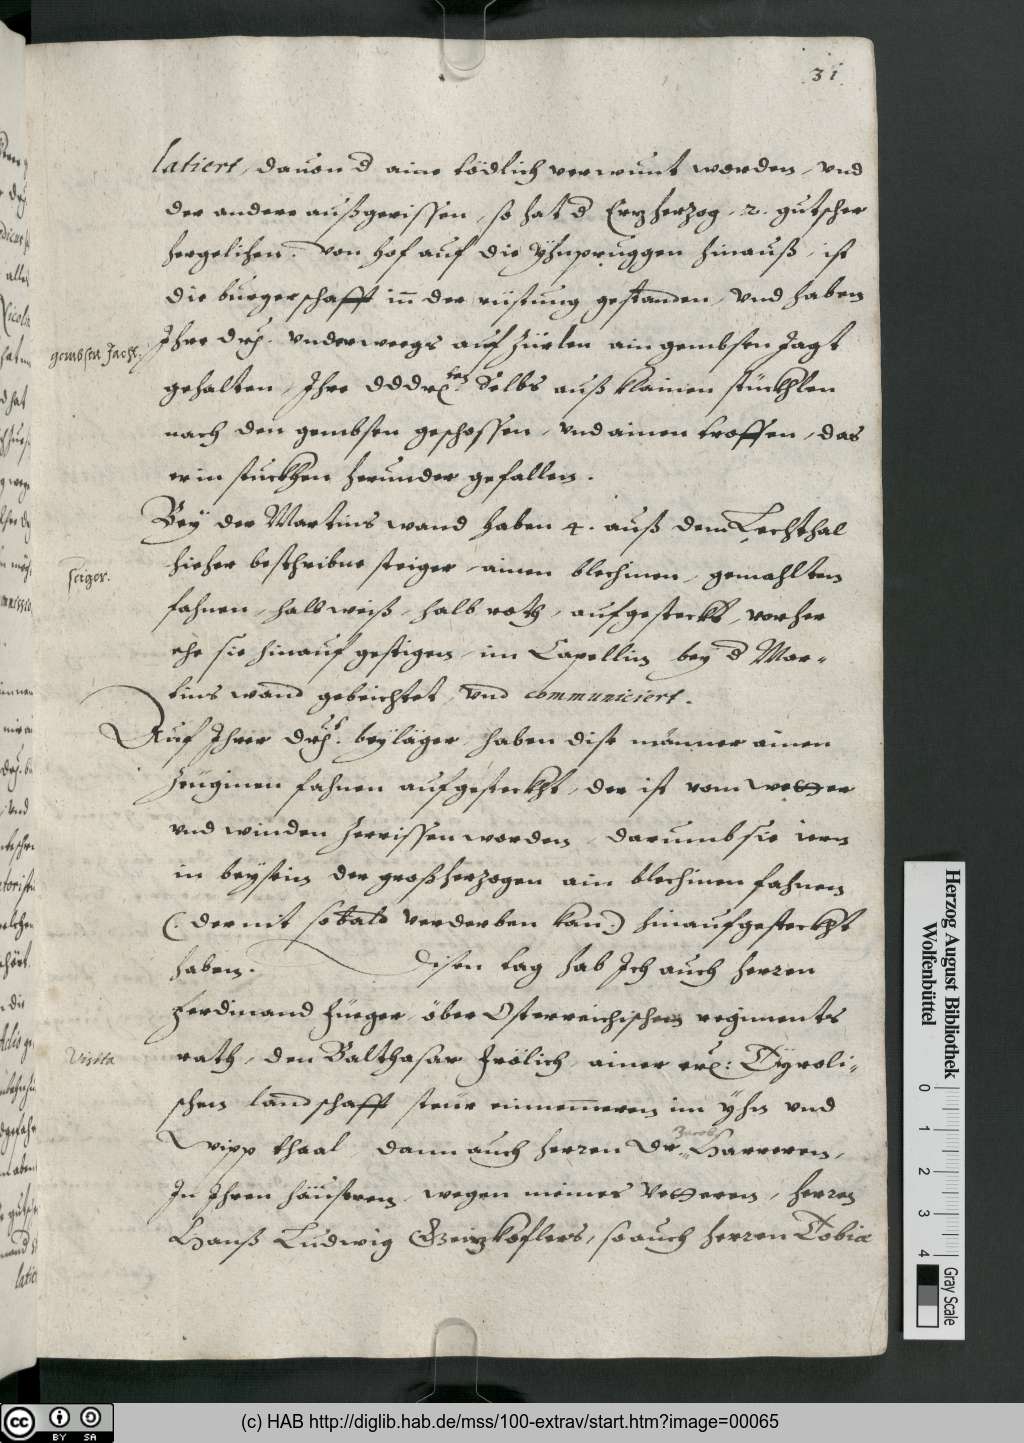 31
latiert, dauon d aine tödlich verwunt worden, vnd
der andere außgerissen, so hat d Erzherzog .2. gutscher
hergelihen. von hof auf die Yhnpruggen hinauß, ist
die burgerschafft in der rüstung gestanden, vnd haben
gembsen Jacht.
Ihre drh. vnderweegs auf Zürlen ain gembsen Jagt
gehalten, Ihre selbs auß klainen stückhlen
nach den gembsen geschossen, vnd ainen troffen, das
er in stuckhen herunder gefallen.
Bey der Martins wand haben 4. auß dem Lechthal
steiger.
hieher beschribne steiger, ainen blechinen, gemahlten
fahnen, halb weiß, halb roth, aufgesteckt, vorher
ehe sie hinauf gestigen, im Capellin bey d Mar-
tins wand gebeichtet, vnd communiciert.
Auf Ihrer drh. beyläger haben dise männer ainen
zeüginen fahnen aufgesteckht, der ist vom wetter
vnd winden zerrissen worden, darumb sie iezn
in beysein der großherzogen ain blechinen fahnen
(: der nit sobald verderben kan :) hinaufgesteckht
haben. Disen tag hab Ich auch herren
Ferdinand Füeger, öber Österreichischen regiments
Visita
rath, den Balthasar Frölich, ainer Tyroli-
schen landschafft steur einnemeren im Yhn vnd
Wipp thaal, dann auch herren Dr. Harreren,
In Ihren häuseren, wegen meines Vetteren, herren
Hanß Ludwig Geizkoflers, so auch herren Tobiæ
Herzog August Bibliothek
Wolfenbüttel
0 1 2 3 4
Gray Scale
cc BY SA
(c) HAB http://diglib.hab.de/mss/100-extrav/start.htm?image=00065